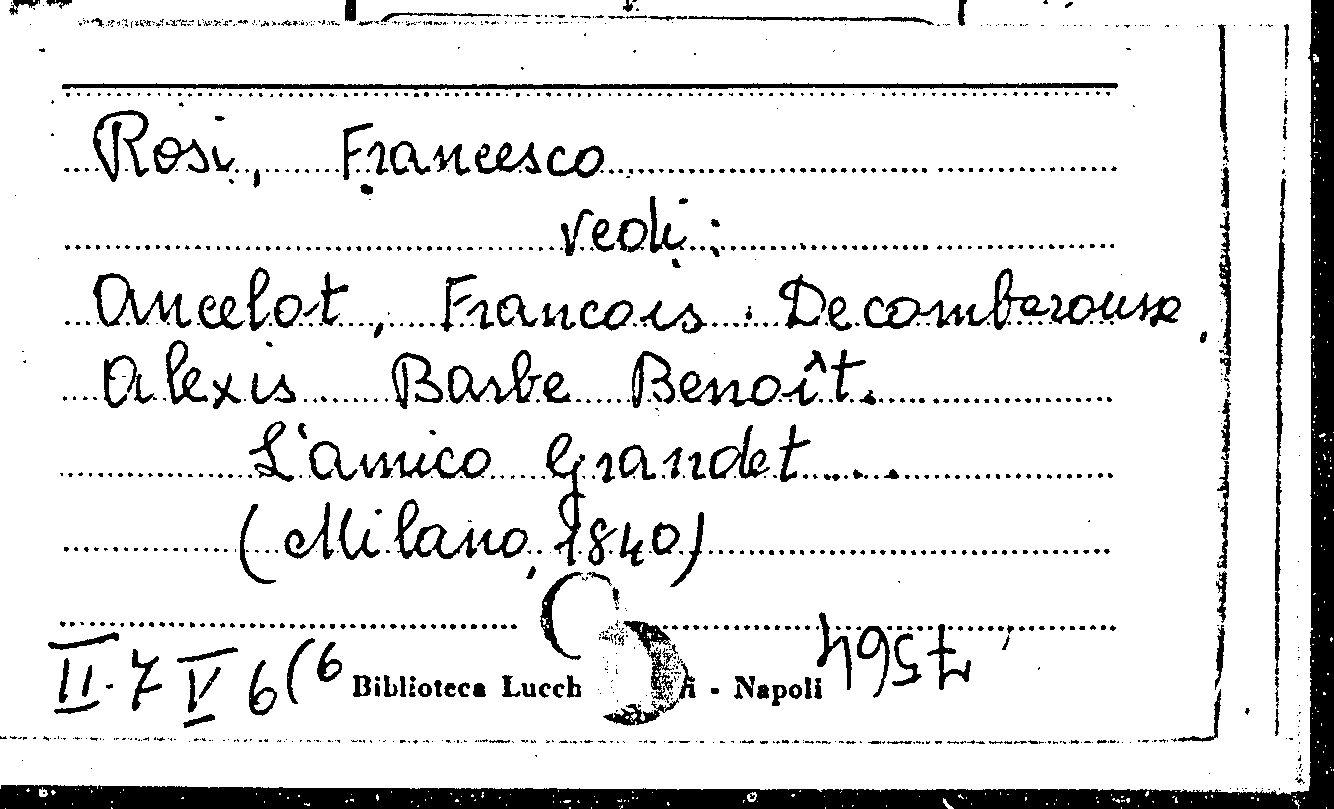 Rosi, Francesco
vedi:
Ancelot, Francois . Decomberousse,
Alexis Barbe Benoît.
L'amico Grandet ...
(Milano, 1840)
II. 7 V 6 (6 Biblioteca Lucch i - Napoli 7564